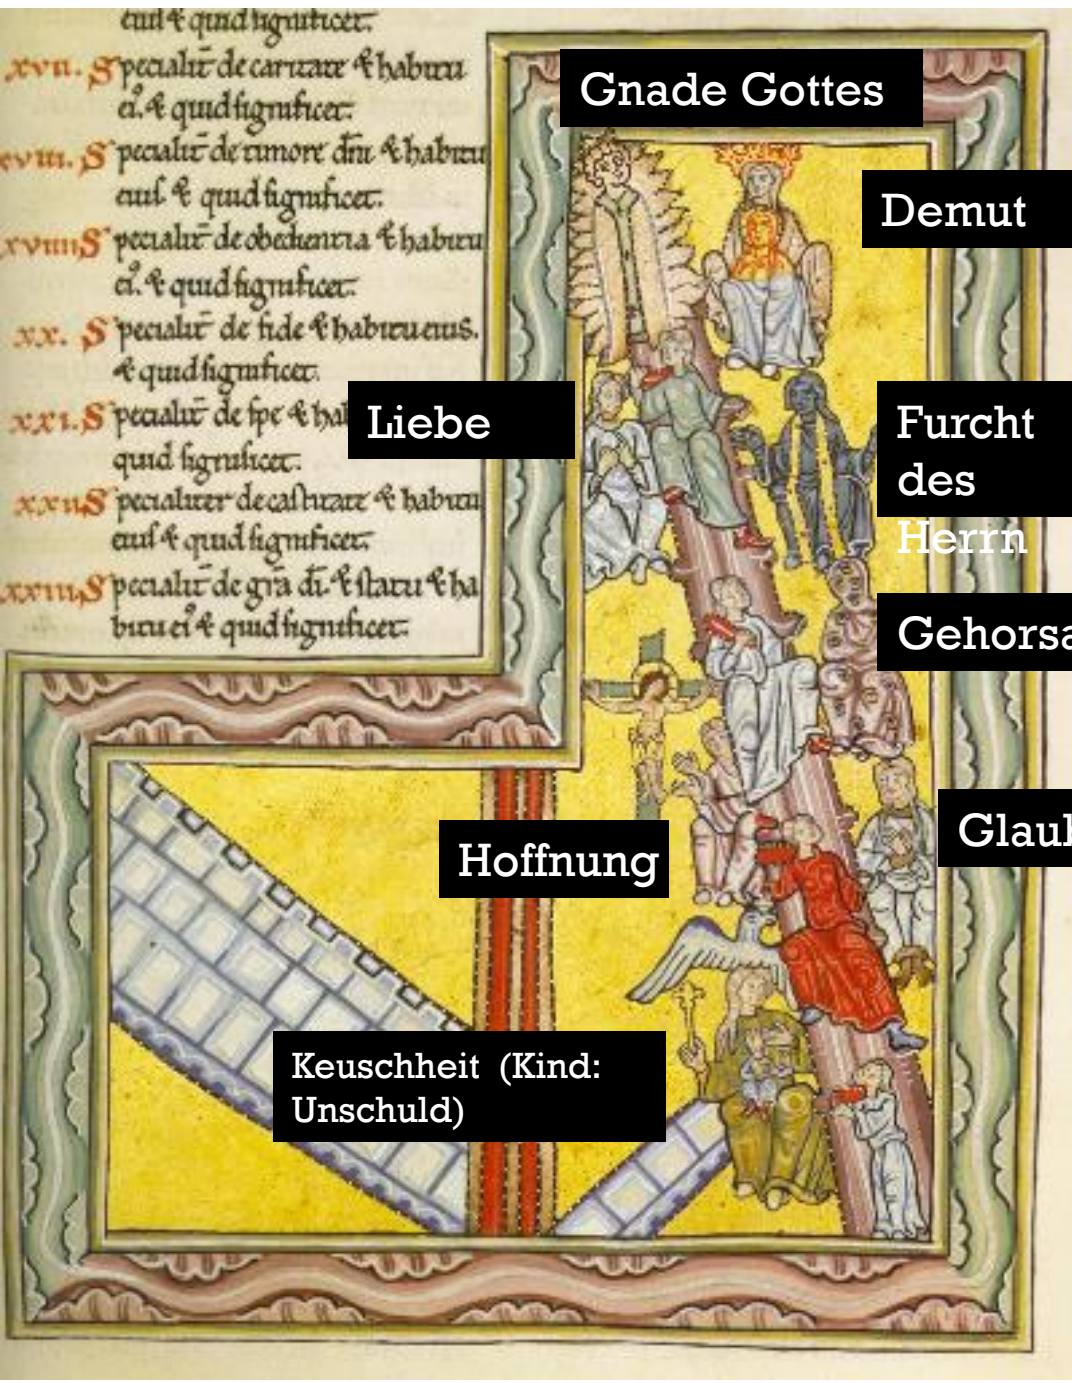 eius & quid significet.
xvii. Specialit̄ de caritate & habitu
ei᷒. & quid significet.
xviii. Specialit̄ de timore dn̄i & habitu
eius & quid significet.
xviiii Specialit̄ de obedientia & habitu
ei᷒. & quid significet.
xx. Specialit̄ de fide & habitu eius.
& quid significet.
xxi. Specialit̄ de spe & ha
quid significet.
xxii Specialiter de castitate & habitu
eius & quid significet.
xxiii Specialit̄ de gr̄a dī. & statu & ha
bitu ei᷒ & quid significet.
Gnade Gottes
Demut
Liebe
Furcht
des
Herrn
Gehorsa
Glau
Hoffnung
Keuschheit (Kind:
Unschuld)